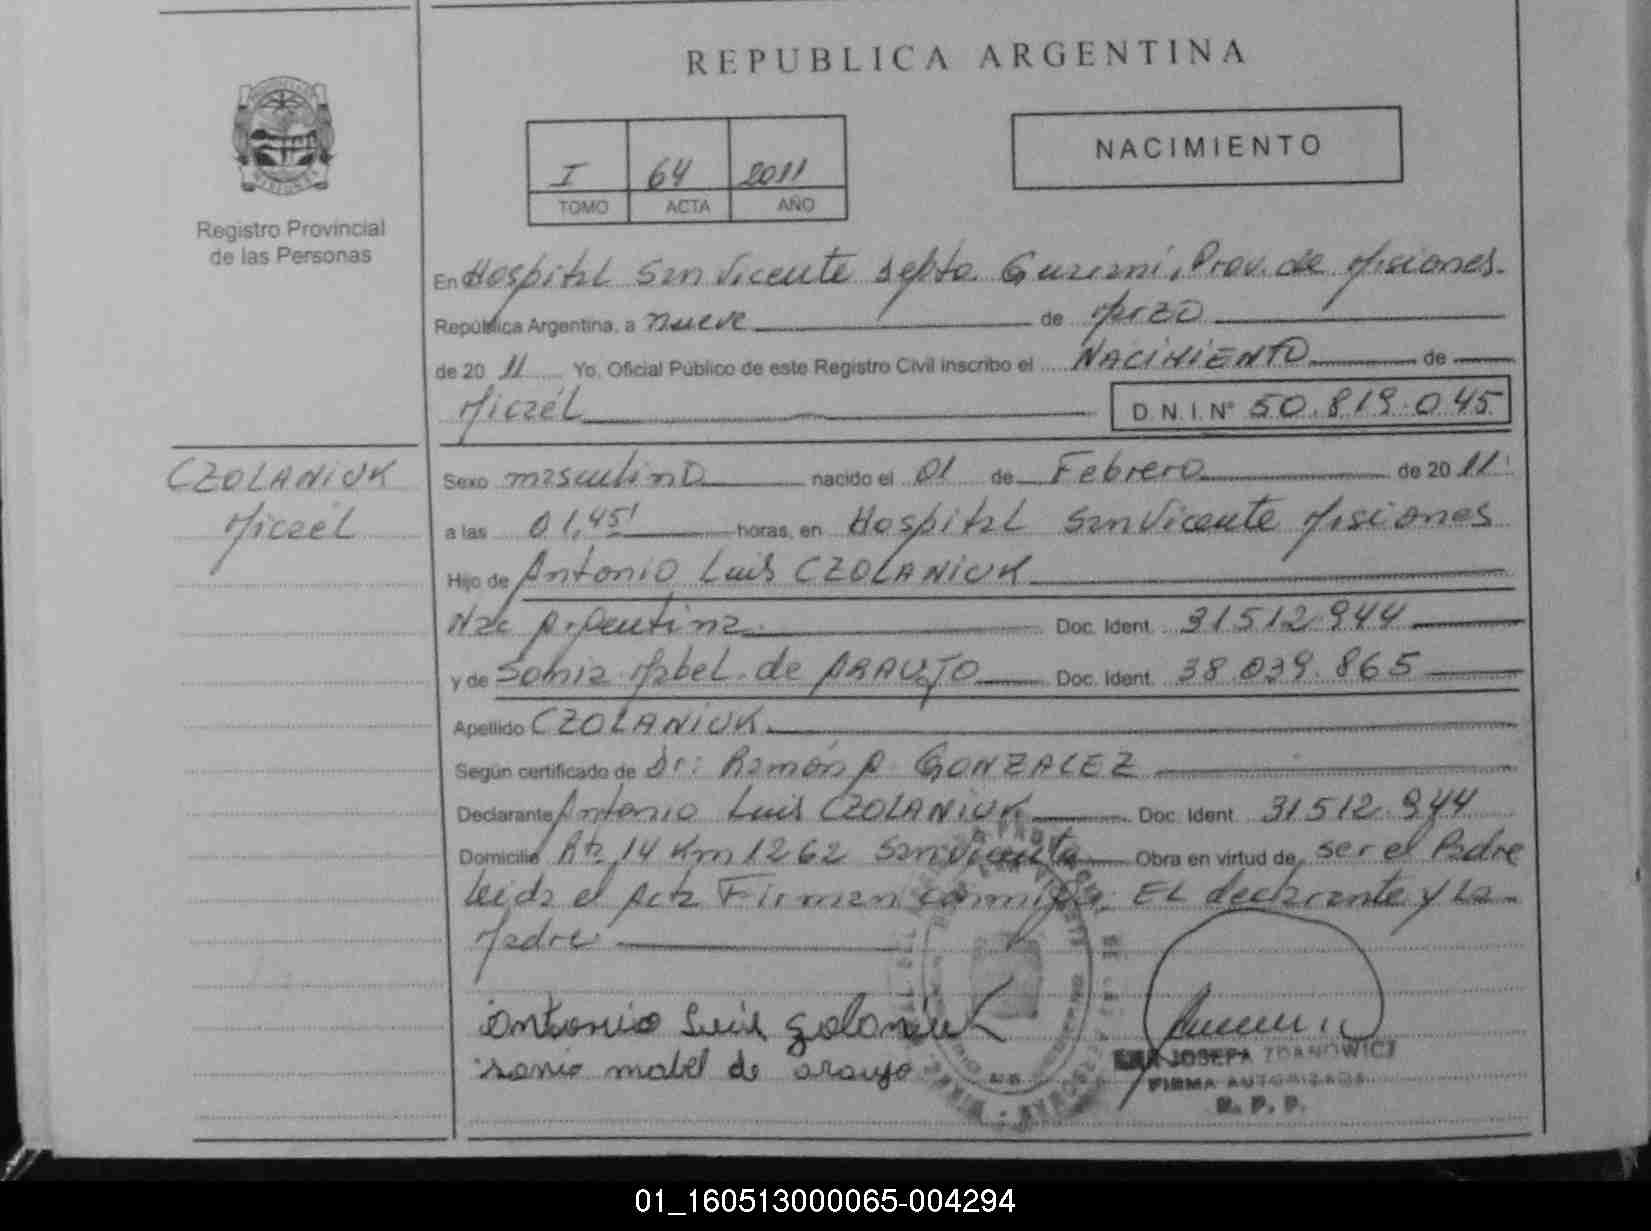 REPUBLICA ARGENTINA
Registro Provincial
de las Personas
I 64 2011
TOMO ACTA AÑO
NACIMIENTO
En Hospital San Vicente depto Guaraní, Prov. de Misiones.
República Argentina, a nueve de Marzo
de 20 11 Yo, Oficial Público de este Registro Civil inscribo el NACIMIENTO de
Micaél D. N. I. Nº 50.819.045
CZOLANIUK
Micaél
Sexo masculino nacido el 01 de Febrero de 20 11
a las 01,45' horas, en Hospital San Vicente Misiones
Hijo de Antonio Luis CZOLANIUK
Nac Argentina Doc. Ident. 31512.944
y de Sonia Mabel de ARAUJO Doc. Ident. 38.039.865
Apellido CZOLANIUK
Según certificado de Dr: Ramón A GONZALEZ
Declarante Antonio Luis CZOLANIUK Doc. Ident. 31512.944
Domicilio Rta 14 Km 1262 San Vicente Obra en virtud de ser el Padre
leida el Acta Firman conmigo, EL declarante y La
Madre
Antonio Luis
sonia mabel de araujo
JOSEFA ZDANOWICZ
FIRMA AUTORIZADA
R. P. P.
01_160513000065-004294